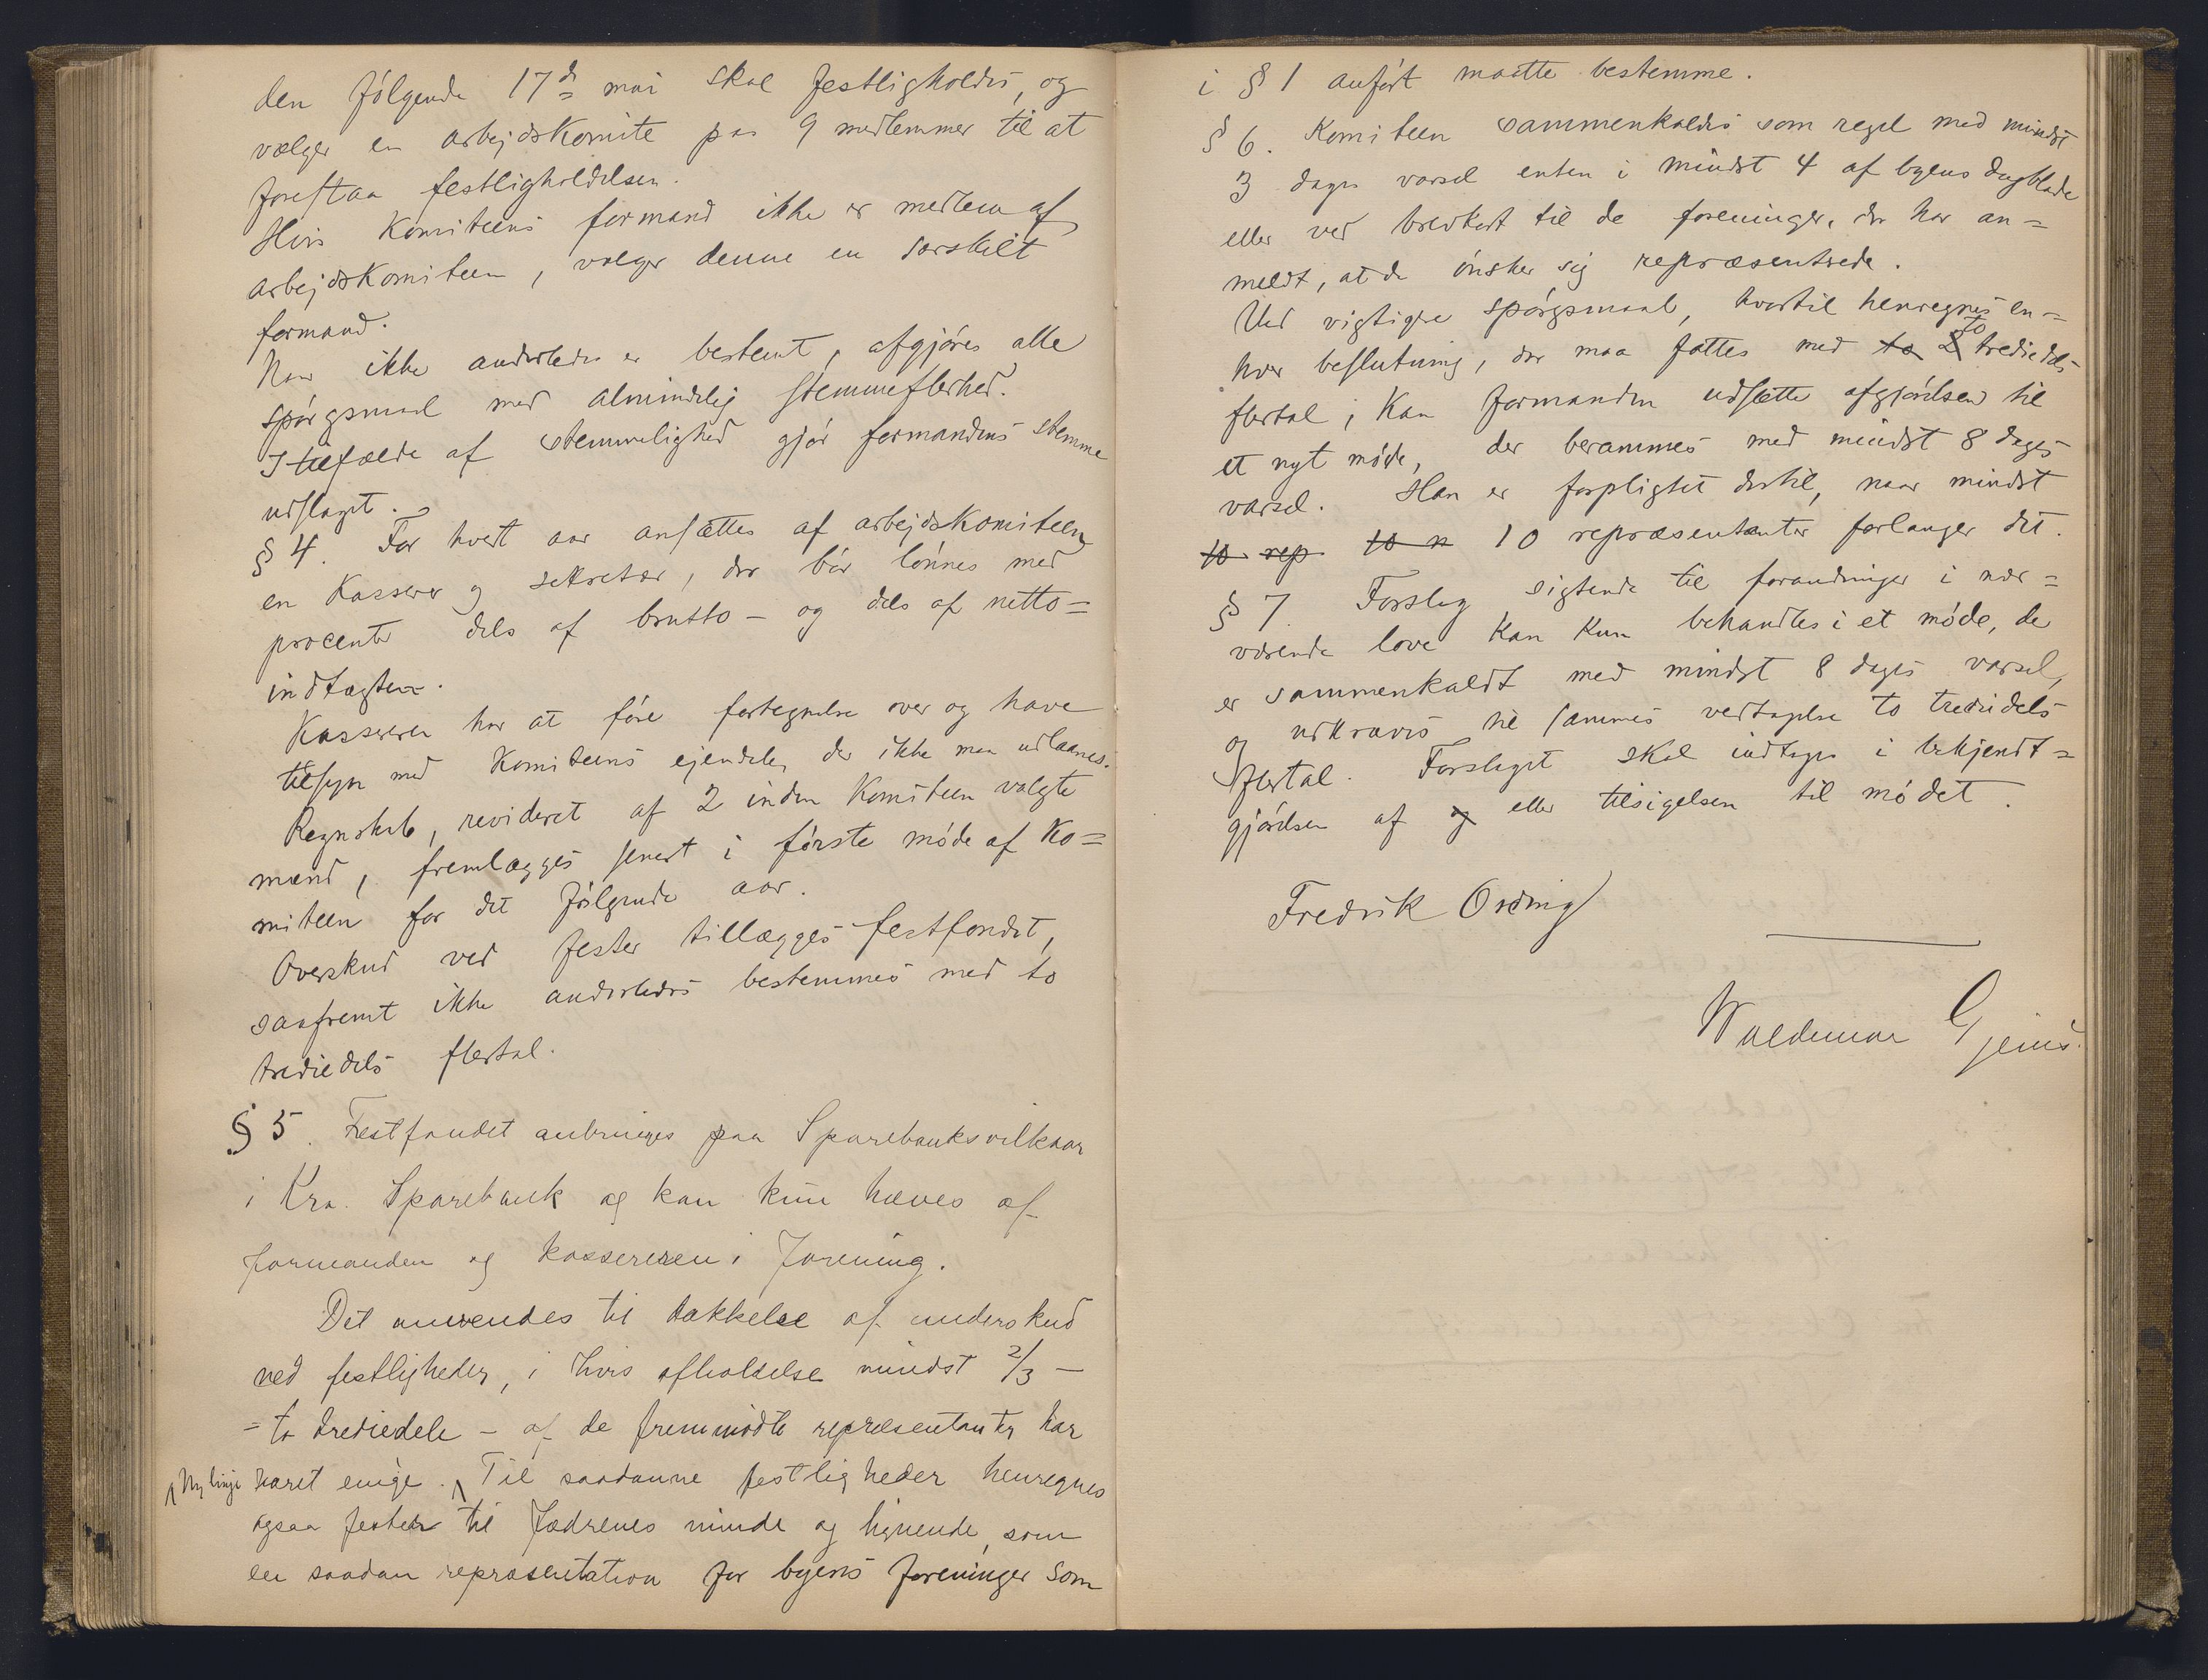 den følgende 17de mai skal festligholdes, og
vælger en arbejdskomite paa 9 medlemmer til at
forestaa festligholdelsen.
Hvis Komiteens formand ikke er medlem af
arbejdskomiteen, vælger denne en særskilt
formand.
Naar ikke anderledes er bestemt, afgjøres alle
spørgsmaal med almindelig stemmeflerhed.
I tilfælde af stemmelighed gjør formandens stemme
udslaget.
§ 4. For hvert aar ansættes af arbejdskomiteen
en Kasserer og sekretær, der bør lønnes med
procenter dels af brutto- og dels af netto=
indtægten.
Kassereren har at føre fortegnelse over og have
tilsyn med Komiteens ejendele, der ikke maa udlaanes.
Regnskab, revideret af 2 inden Komiteen valgte
mænd, fremlægges senest i første møde af Ko=
miteen for det følgende aar.
Overskud ved fester tillægges festfondet,
saafremt ikke anderledes bestemmes med to
trediedels flertal.
§ 5. Festfondet anbringes paa Sparebanksvilkaar
i Kra. Sparebank og kan kun hæves af
formanden og kassereren i forening.
Det anvendes til dækkelse af underskud
ved festligheder, i hvis afholdelse mindst 2/3 -
= to trediedele - af de fremmødte repræsentanter har
Ny linje været enige. Til saadanne festligheder henregnes
ogsaa fester til fædrenes minde og lignende, som
en saadan repræsentation for byens foreninger som
i § 1 anført maatte bestemme.
§ 6. Komiteen sammenkaldes som regel med mindst
3 dages varsel enten i mindst 4 af byens dagblade
eller ved brevkort til de foreninger, der har an=
meldt, at de ønsker sig repræsenterede.
Ved vigtigere spørgsmaal, hvortil henregnes en=
hver beslutning, der maa fattes med to 2 to trediedels
flertal, kan formanden udsætte afgjørelsen til
et nyt møde, der berammes med mindst 8 dages
varsel. Han er forpligtet dertil, naar mindst
10 rep 10 n 10 repræsentanter forlanger det.
§ 7. Forslag sigtende til forandringer i nær=
værende love kan kun behandles i et møde, de
er sammenkaldt med mindst 8 dages varsel,
og udkræves til sammes vedtagelse to trediedels
flertal. Forslaget skal indtages i bekjendt=
gjørelsen af og eller tilsigelsen til mødet.
Fredrik Ording
Waldemar Gjems.